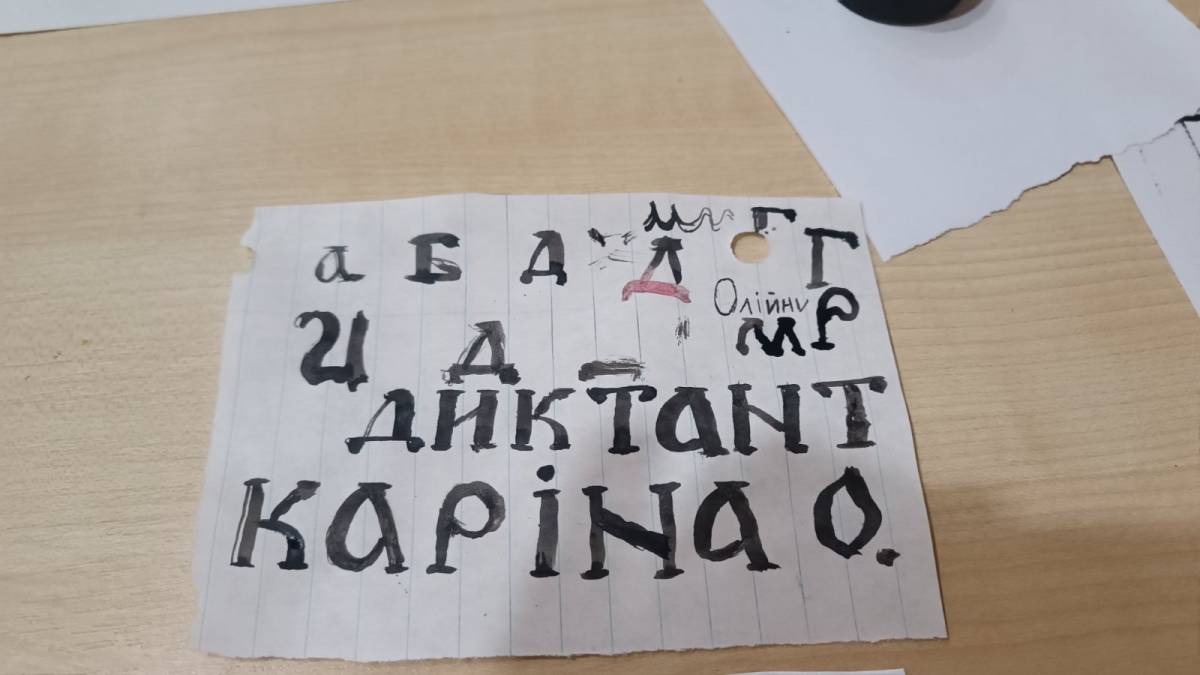 а Б Д Д Г Г
Олійни
И Д М Р
ДИКТАНТ
КАРІNА О.